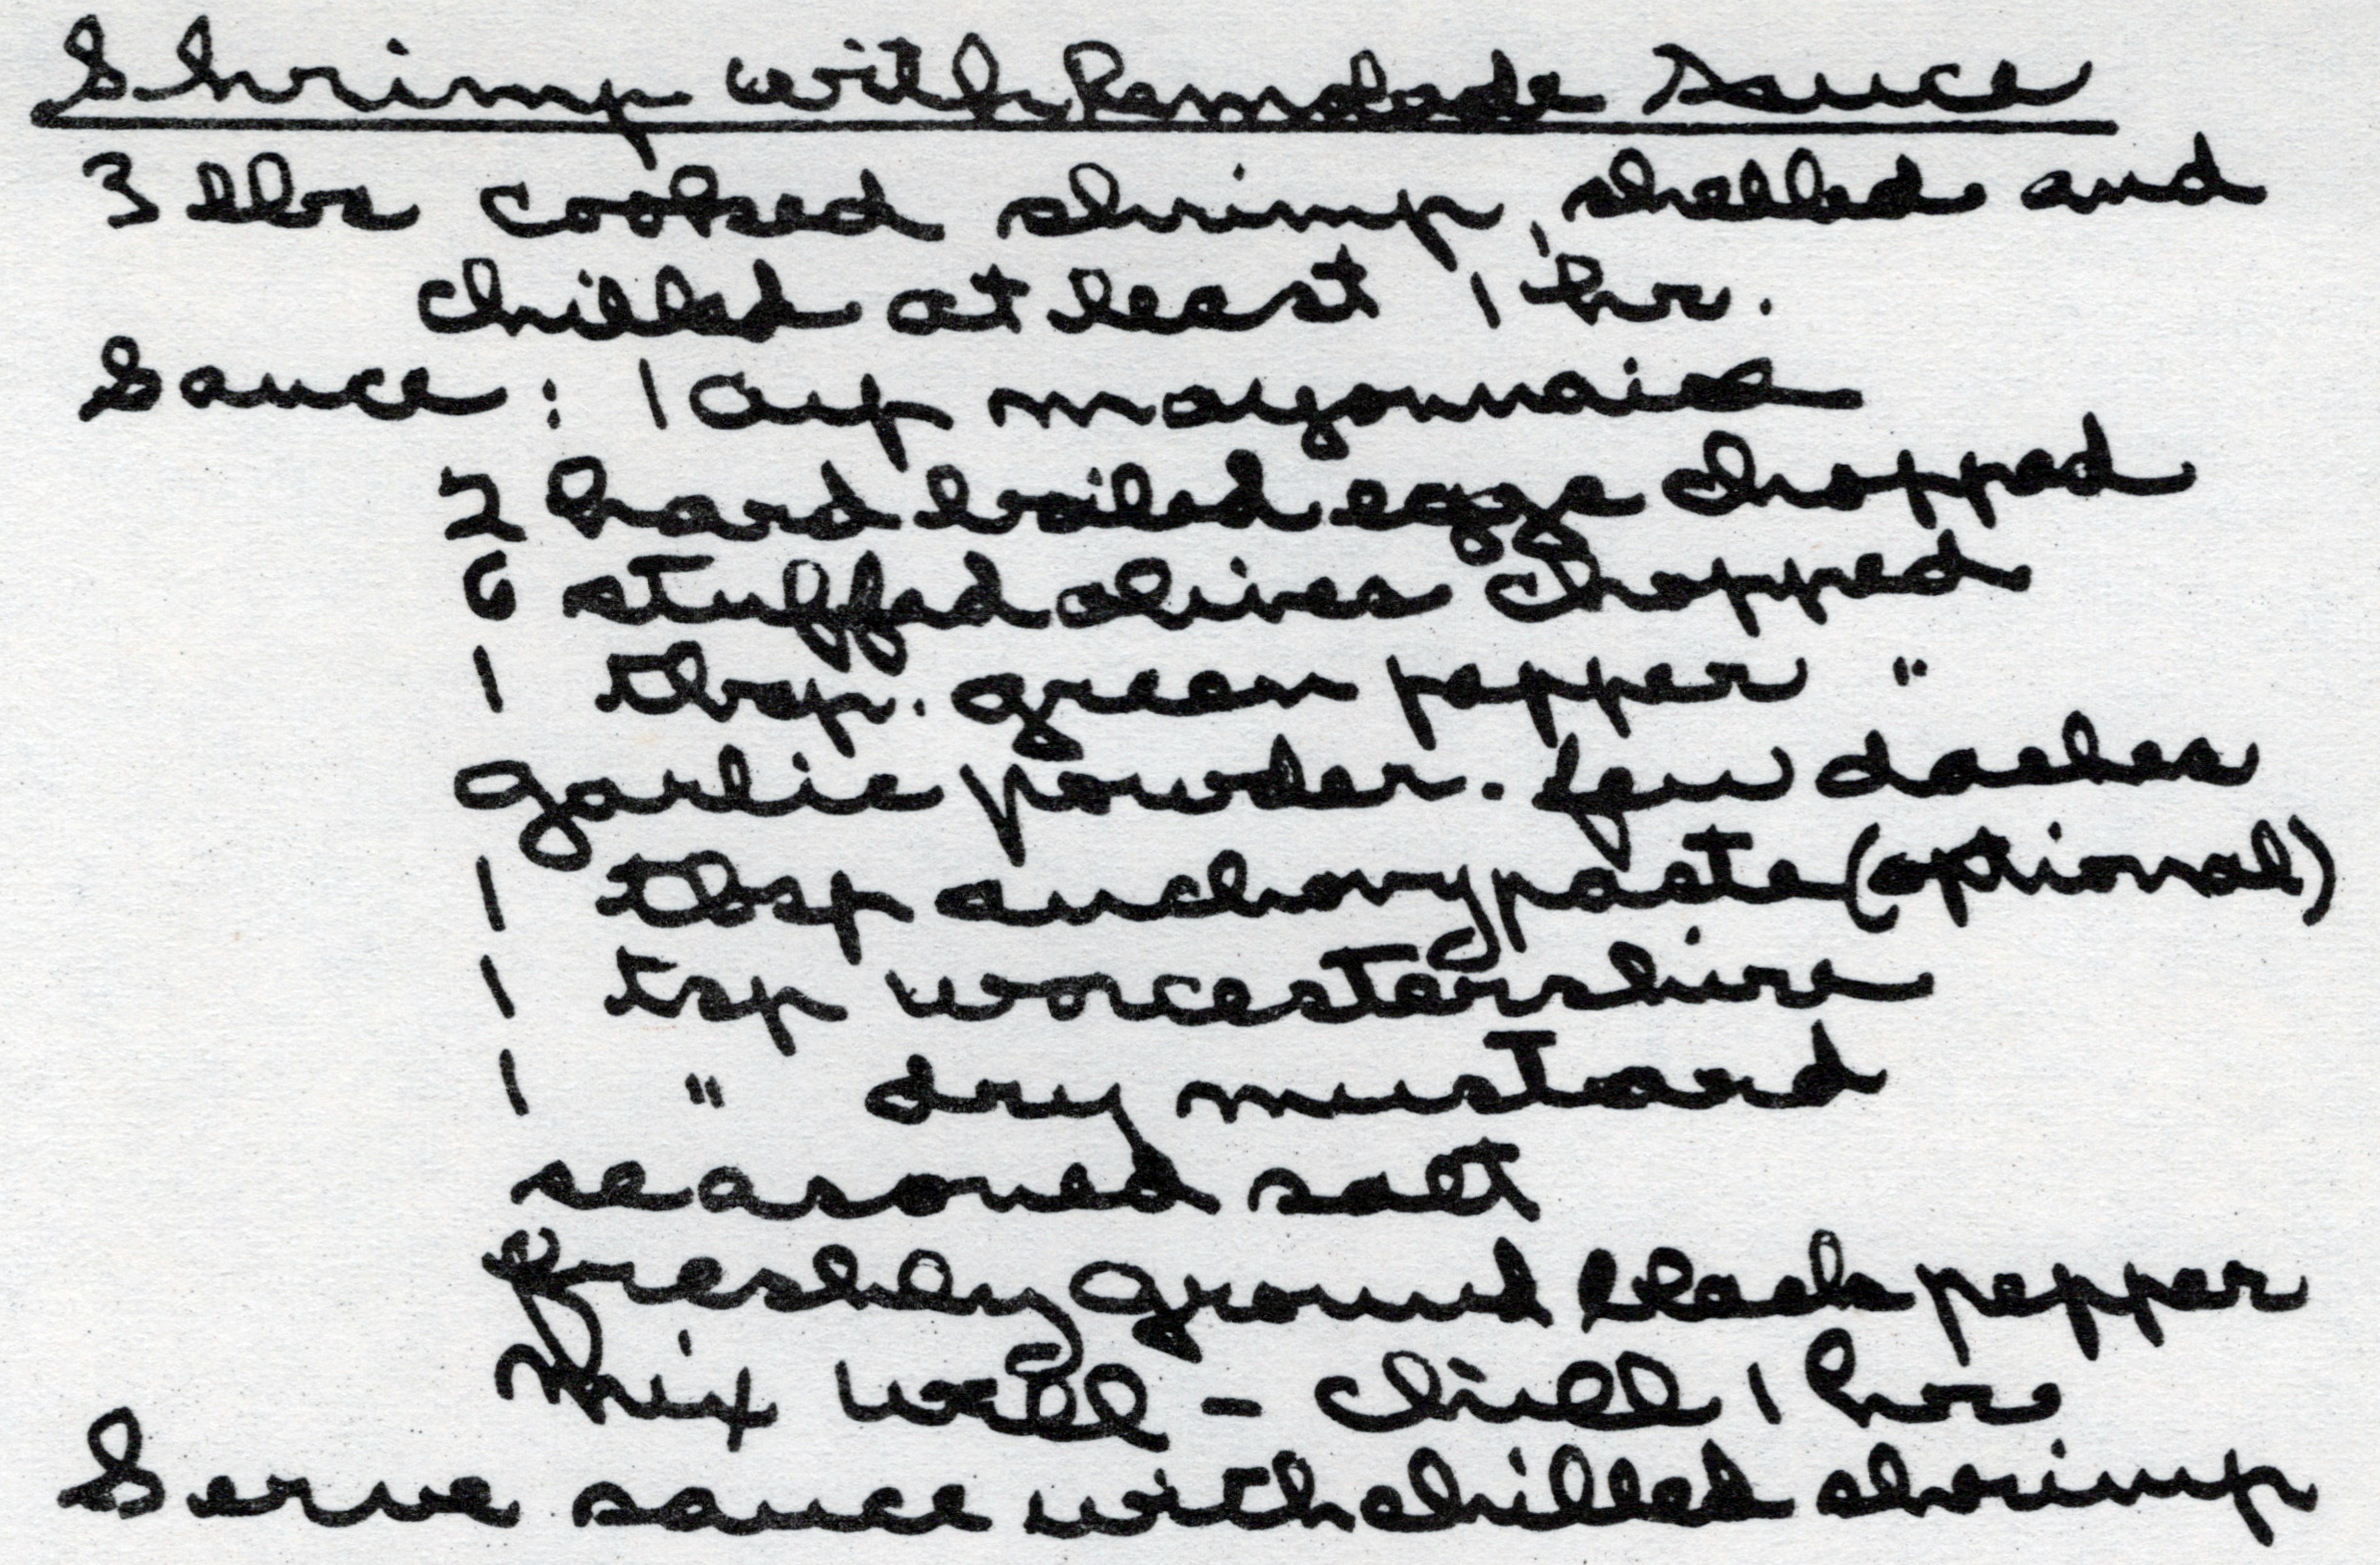 Shrimp with Remolade Sauce
3 lbs cooked shrimp, shelled and
chilled at least 1 hr.
Sauce: 1 cup mayonnaise
2 hard boiled eggs chopped
6 stuffed olives chopped
1 tbsp. green pepper "
garlic powder. few dashes
1 tbsp anchovy paste (optional)
1 tsp worcestershire
1 " dry mustard
seasoned salt
freshly ground black pepper
Mix well - chill 1 hr
Serve sauce with chilled shrimp